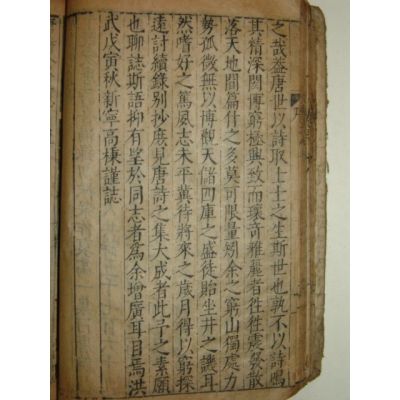 之哉蓋唐世以詩取士士之生斯世也孰不以詩鳴
其精深閎博窮極興致而瓌奇雅麗者徃徃震發散
落天地間篇什之多莫可限量矧余之窮山獨處力
勢孤微無以博觀天儲四庫之盛徒貽坐井之譏耳
然嗜好之篤風志未平冀待將來之歲月得以窮探
遠討續錄别抄庻見唐詩之集大成者此予之素願
也聊誌斯語抑有望於同志者爲余增廣耳目焉洪
武戊寅秋新寧高棅謹誌